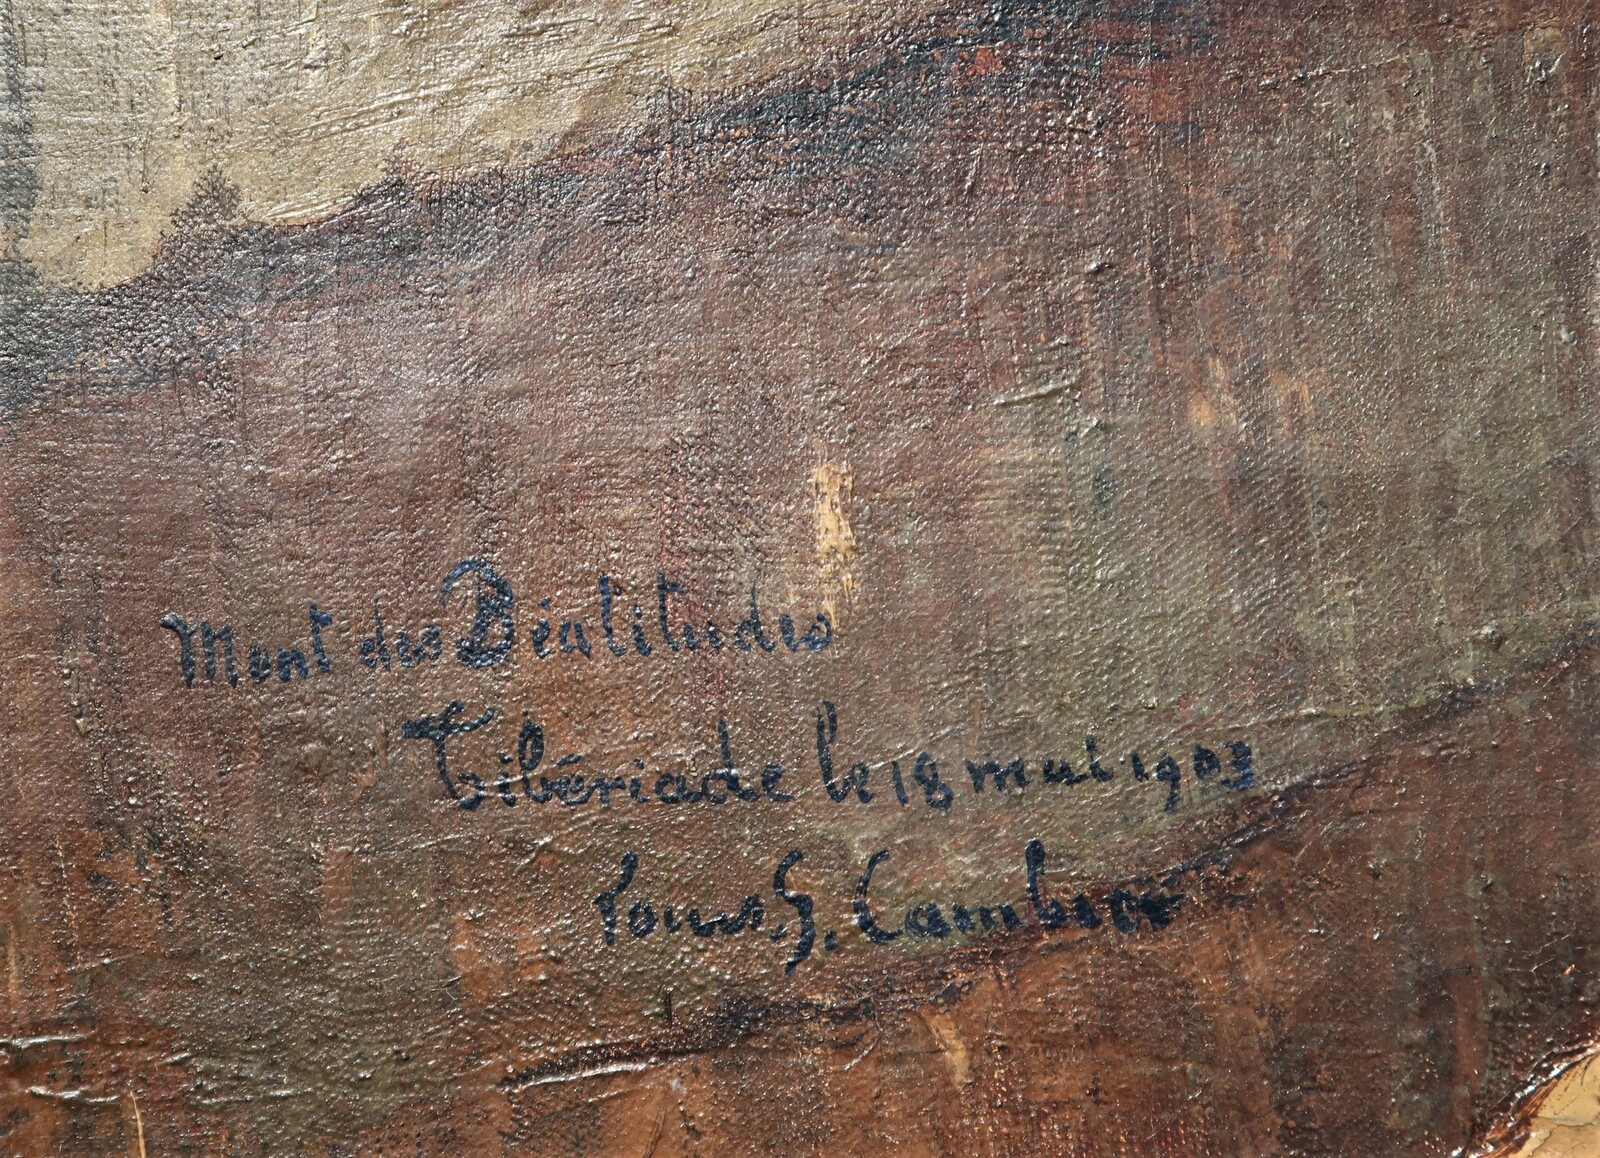 Mont des Béatitudes
Tibériade le 18 mai 1903
Louis. G. Cambier